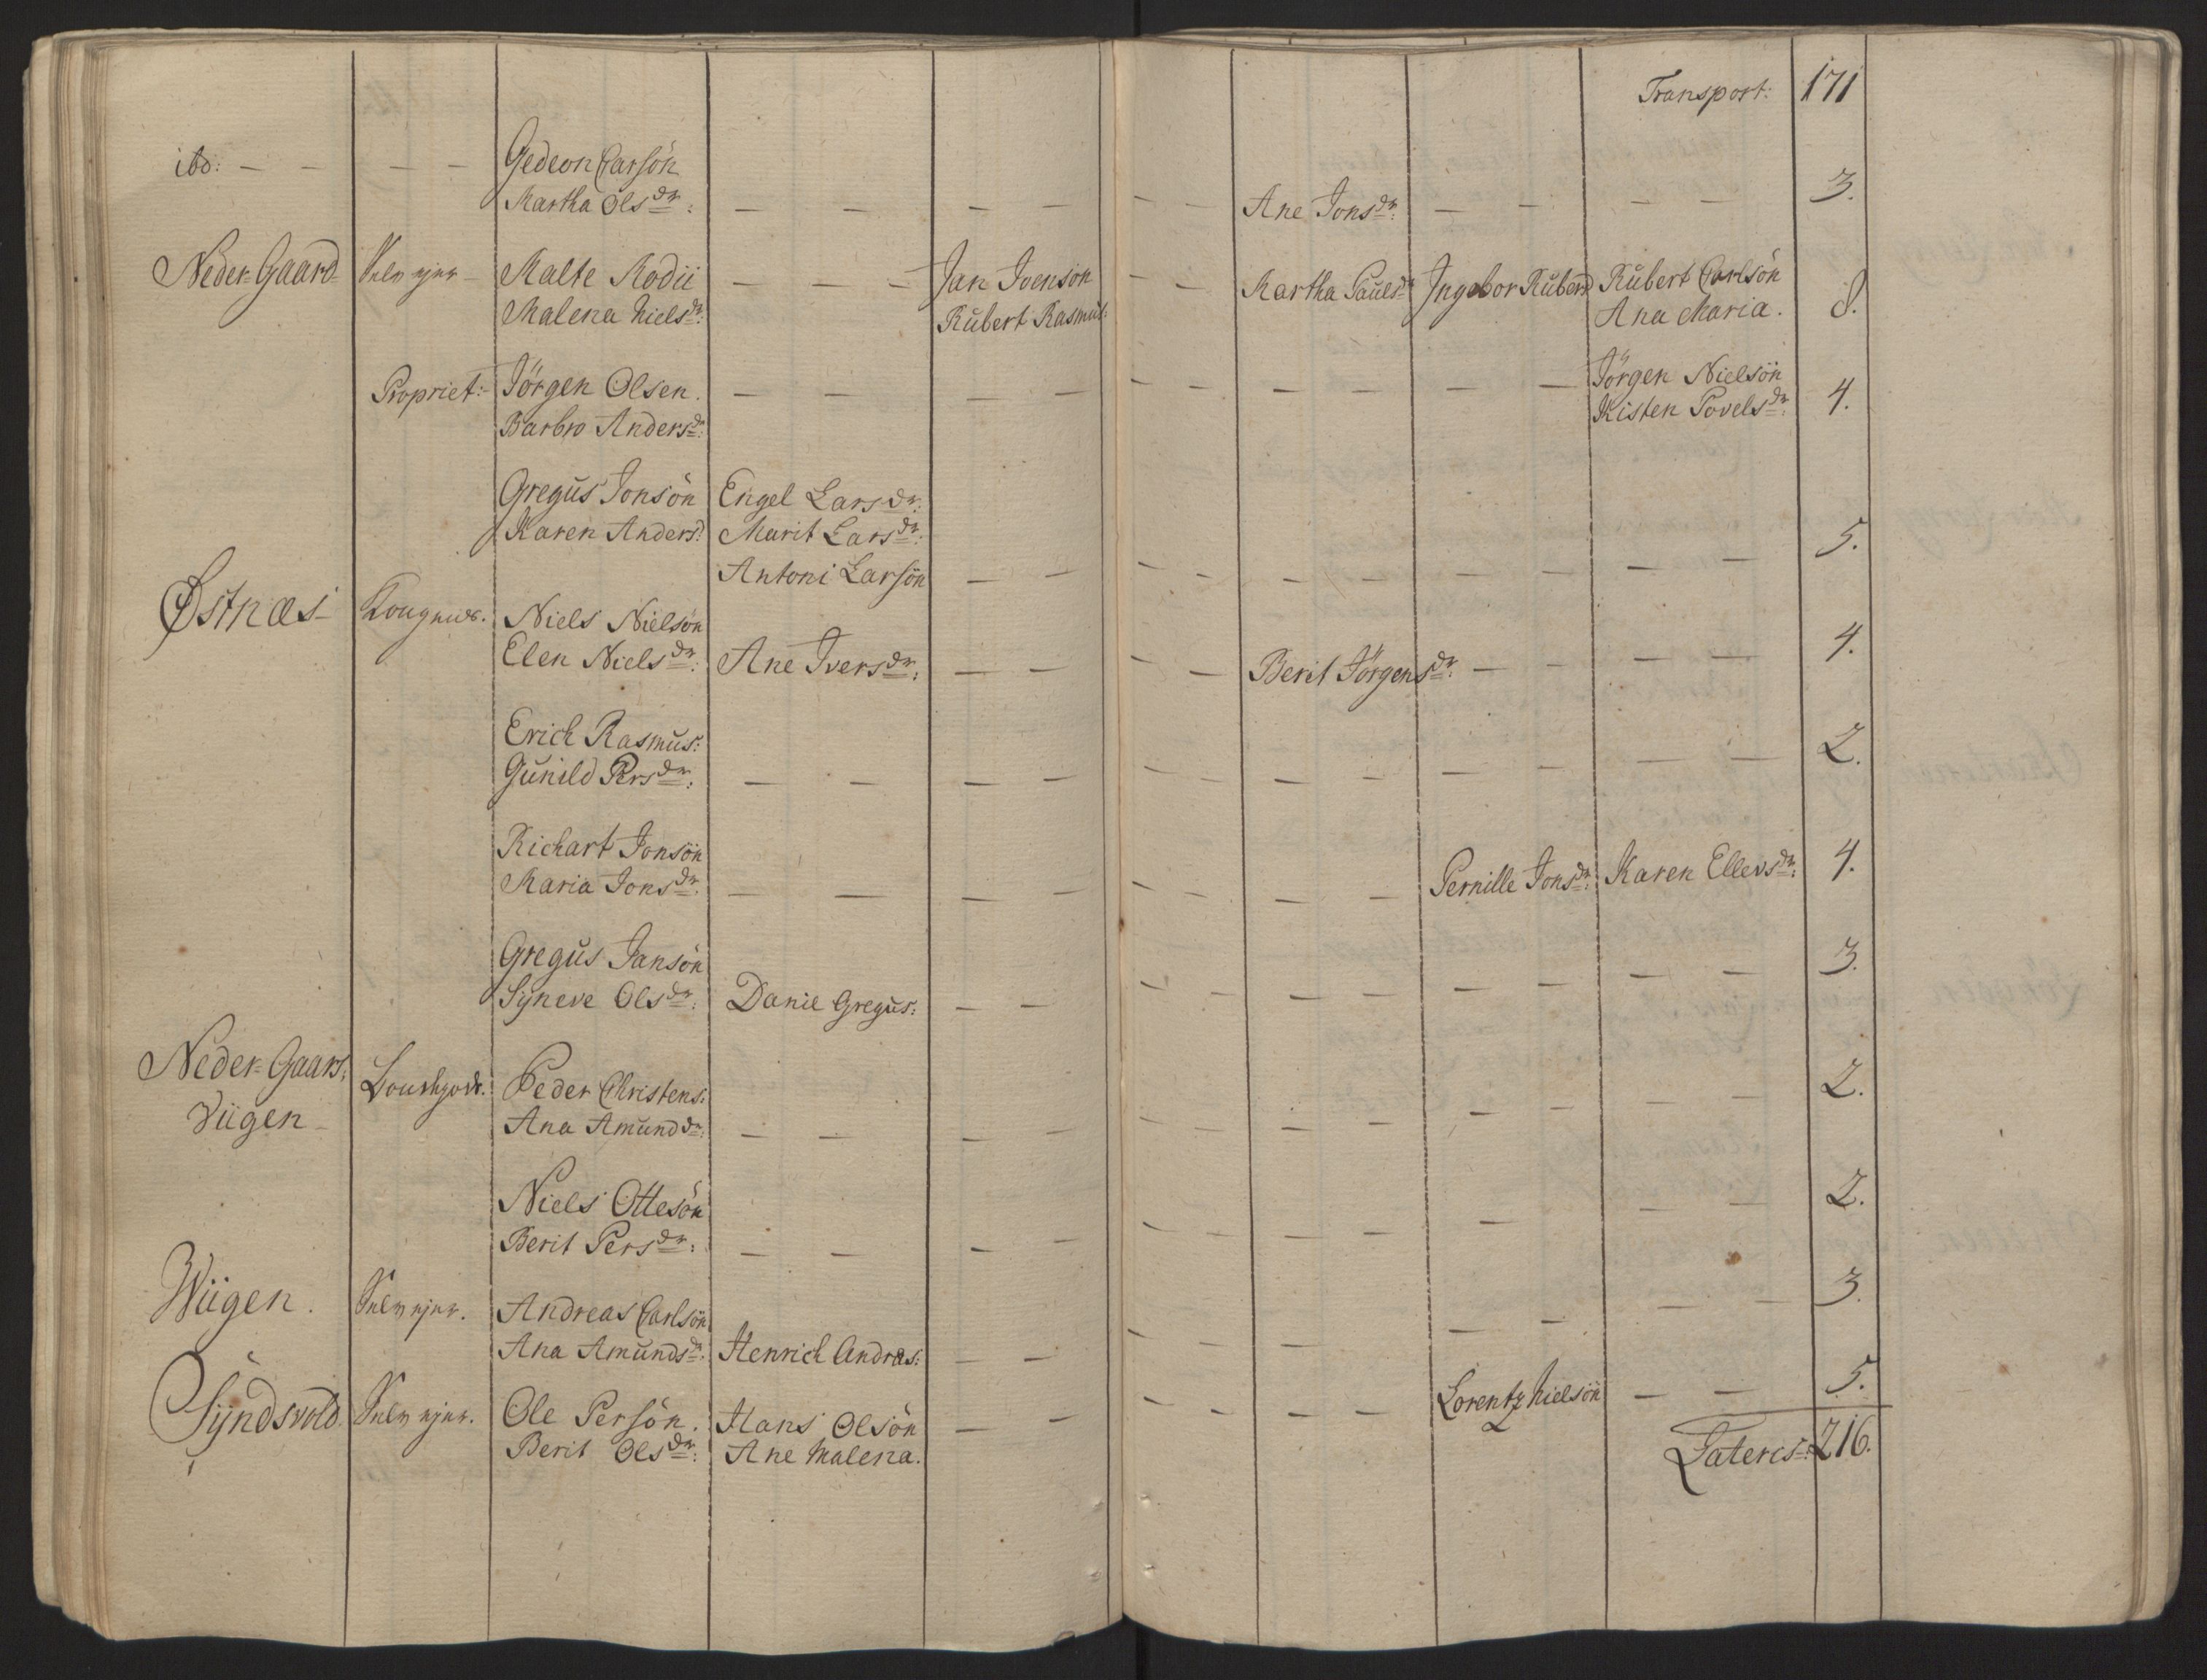 Transport: 171
ibd: — — — — Gedeon Carsön
Martha Olsdr: — — — — — — Ane Jonsdr: — — — — 3.
Neder-Gaard- Selv ejer — Malte Modii — — — Jan Ivensön — — Martha Paulsdr Ingebor Rüberd Rübert Carlsön
Malena Nielsdr: Rübert Rasmus: Ana Maria. 8.
Propriet: Jörgen Olsen. — — — — — — — — — — Jörgen Nielsön
Barbro Andersdr: Kisten Povelsdr: 4.
Gregus Jonsön Engel Larsdr:
Karen Anders: Marit Larsdr:
Antoni Larsön — — — — — — — — — — 5.
Østnæs- Niels Nielsön
Elen Nielsdr: Ane Iversdr: — — — — Berit Jörgensdr: — — — — 4.
Erich Rasmus:
Gunild Persdr: — — — — — — — — — — — — 2.
Richart Jonsön
Maria Jonsdr: — — — — — — — — Pernille Jonsdr: Karen Ellevsdr: 4.
Gregus Jansön
Syneve Olsdr: Danie Gregus: — — — — — — — — — — 3.
Neder-Gaars: Peder Christens:
Viigen — Ana Amundsdr: — — — — — — — — — — — 2.
Niels Ottesön
Berit Persdr: — — — — — — — — — — — 2.
Wiigen. Selv ejer. Andreas Carlsön
Ana Amundsdr: Henrich Andras: — — — — — — — — — 3.
Syndsvold. Selv ejer. Ole Persön. Hans Olsön — — — — — — Lorentz Nielsön — — 5.
Berit Olsdr: Ane Malena.
Lateris: 216.